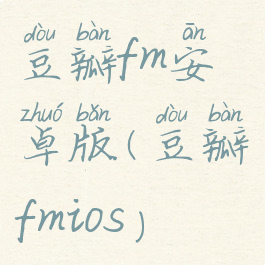 dòu bàn ān
豆瓣fm安
zhuó bǎn dòu bàn
卓版(豆瓣
fmios)